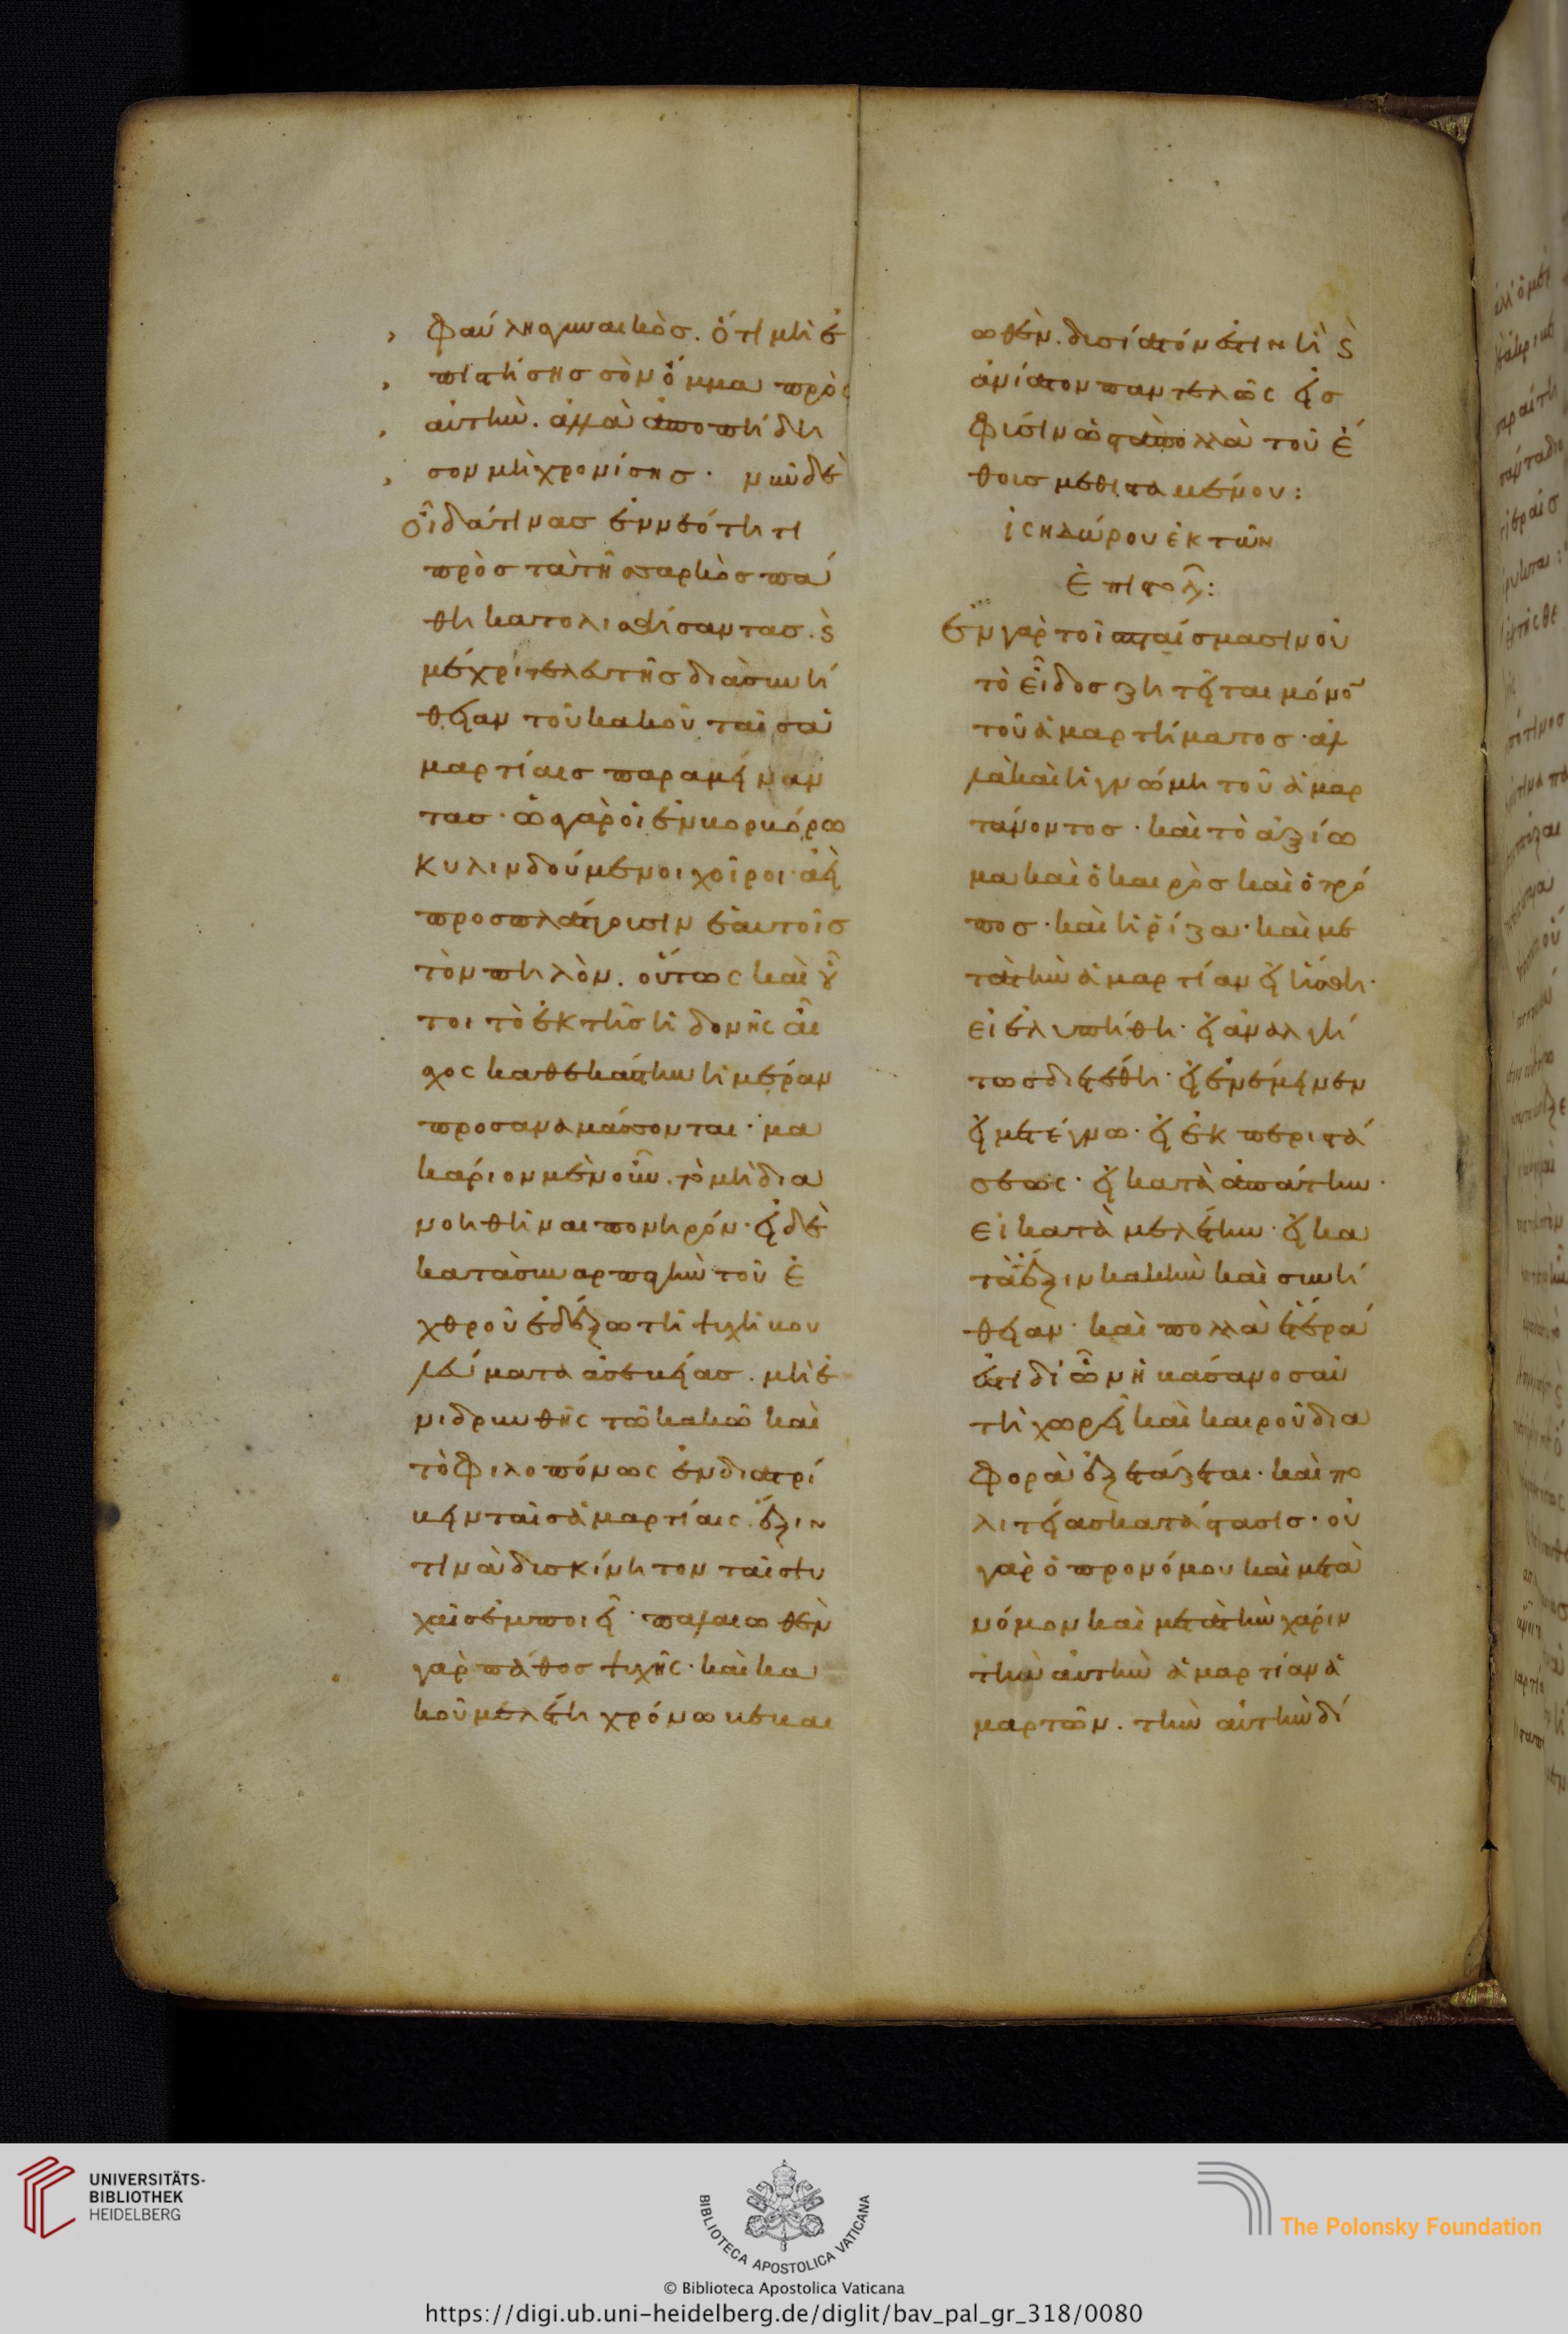 φαύλη γυναικὸσ. ὅτι μὴ ἐ
πιστήσησ σὸν ὄμμα πρὸς
αὐτὴν. ἀλλὰ ἀποπήδη
σον μὴ χρονίσησ· νῦν δὲ
οἶδά τινασ ἐν νεότητι
πρὸσ τὰ τῆσ σαρκὸσ πά
θη κατολισθήσαντασ. καὶ
μέχρι
θείαν τοῦ κακοῦ ταῖσ ἁ
μαρτίαισ παραμείναν
τασ· ὡσ γὰρ οἱ ἐν βορβόρω
κυλινδούμενοι χοῖροι· ἀεὶ
προσπλάττουσιν ἑαυτοῖσ
τὸν πηλὸν. οὕτως καὶ οὗ
τοι τὸ ἐκ τῆσ ἡδονῆς αἶ
σχος καθ' ἑκάστην ἡμέραν
προσαναμάσσονται· μα
κάριον μὲν οὖν. τὸ μὴ δια
νοηθῆναι πονηρόν· εἰ δὲ
κατὰ συναρπαγὴν τοῦ ἐ
χθροῦ ἐδέξω τῆ ψυχῆ βου
λεύματα ἀσεβείασ. μὴ ἐ
νιδρυνθῆς τῶ κακῶ καὶ
τὸ φιλοπόνως ἐνδιατρί
βειν ταῖσ ἁμαρτίαις. ἕξιν
τινὰ δυσκίνητον ταῖσ ψυ
χαῖσ ἐμποιεῖ· παλαιωθὲν
γὰρ πάθοσ ψυχῆς· καὶ κα
κοῦ μελέτη χρόνω βεβαι
ωθὲν. δυσίατόν ἐστιν ἢ καὶ
ἀνίατον παντελῶς εἰσ
φύσιν ὡσ τὰ πολλὰ τοῦ ἔ
θουσ μεθισταμένου:
ἰσηδώρου ἐκ τῶν
ἐπιστολ:
ἐν γὰρ τοῖσ πταίσμασιν οὐ
τὸ εἶδοσ ζητεῖται μόνον
τοῦ ἁμαρτήματοσ· ἀλ
λὰ καὶ ἡ γνώμη τοῦ ἁμαρ
τάνοντοσ· καὶ τὸ ἀξίω
μα καὶ ὁ καιρὸσ καὶ ὁ τρό
ποσ· καὶ ἡ ῥίζα· καὶ με
τὰ τὴν ἁμαρτίαν εἰ ἥσθη·
εἰ ἐλυπήθη· εἰ ἀναλγή
τωσ διετέθη· εἰ ἐνέμεινεν
εἰ μετέγνω· εἰ ἐκ περιστά
σεως· εἰ κατὰ ἀπάτην·
εἰ κατὰ μελέτην· εἰ κα
τὰ ἕξιν κακὴν καὶ συνή
θειαν· καὶ πολλὰ ἕτερά
ἐστι δι' ὧν ἡ βάσανοσ αὐ
τὴ χωρεῖ καὶ καιροῦ δια
φορὰ ἐξετάζεται· καὶ πο
λιτείασ κατάστασισ· οὐ
γὰρ ὁ πρὸ νόμου καὶ μετὰ
νόμον καὶ μετὰ τὴν χάριν
τὴν αὐτὴν ἁμαρτίαν ἁ
μαρτῶν. τὴν αὐτὴν δί
UNIVERSITÄTS-
BIBLIOTHEK
HEIDELBERG
BIBLIOTECA APOSTOLICA VATICANA
The Polonsky Foundation
© Biblioteca Apostolica Vaticana
https://digi.ub.uni-heidelberg.de/diglit/bav_pal_gr_318/0080